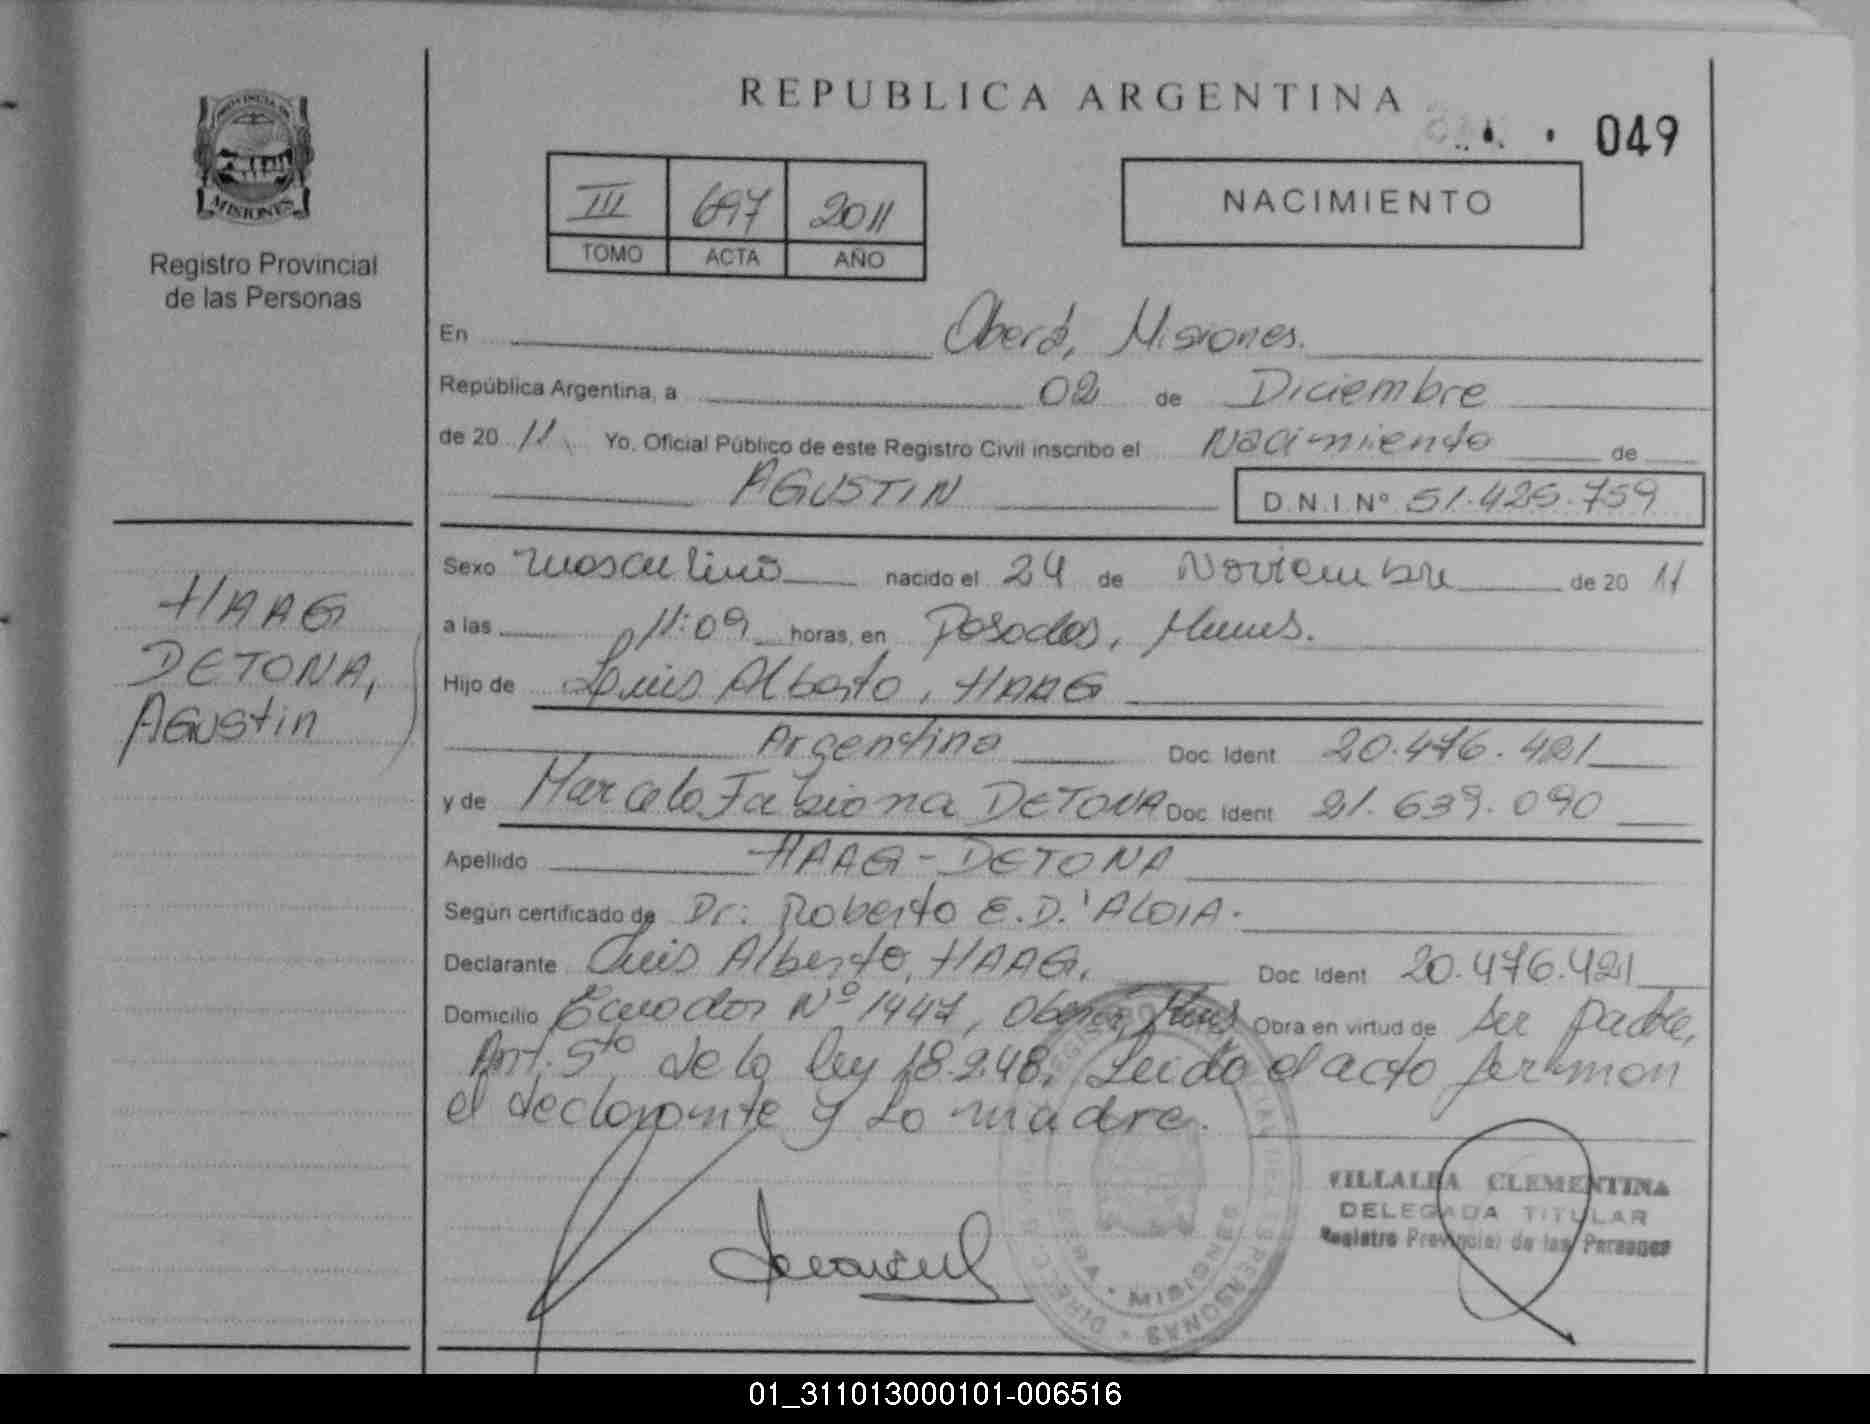 REPUBLICA ARGENTINA
049
PROVINCIA DE
MISIONES
Registro Provincial
de las Personas
III 697 2011
TOMO ACTA AÑO
NACIMIENTO
En Oberá, Misiones.
República Argentina, a 02 de Diciembre
de 20 11 Yo, Oficial Público de este Registro Civil inscribo el Nacimiento de
AGUSTIN D.N.I. Nº 51.425.759
Sexo Masculino nacido el 24 de Noviembre de 20 11
a las 11:09 horas, en Posadas, Mnes.
Hijo de Luis Alberto, HAAG
Argentino Doc. Ident 20.476.421
y de Marcela Fabiana DETONA Doc. Ident 21.639.090
Apellido HAAG - DETONA
Según certificado de Dr: Roberto E. D.'ALOIA.
Declarante Luis Alberto, HAAG. Doc. Ident 20.476.421
Domicilio Ecuador Nº 1447, Oberá, Mnes Obra en virtud de ser padre,
Art. 5to de la ley 18.248. Leido el acto firman
el declarante y la madre.
HAAG
DETONA,
Agustin
VILLALBA CLEMENTINA
DELEGADA TITULAR
Registro Provincial de las Personas
MISIONES
01_311013000101-006516